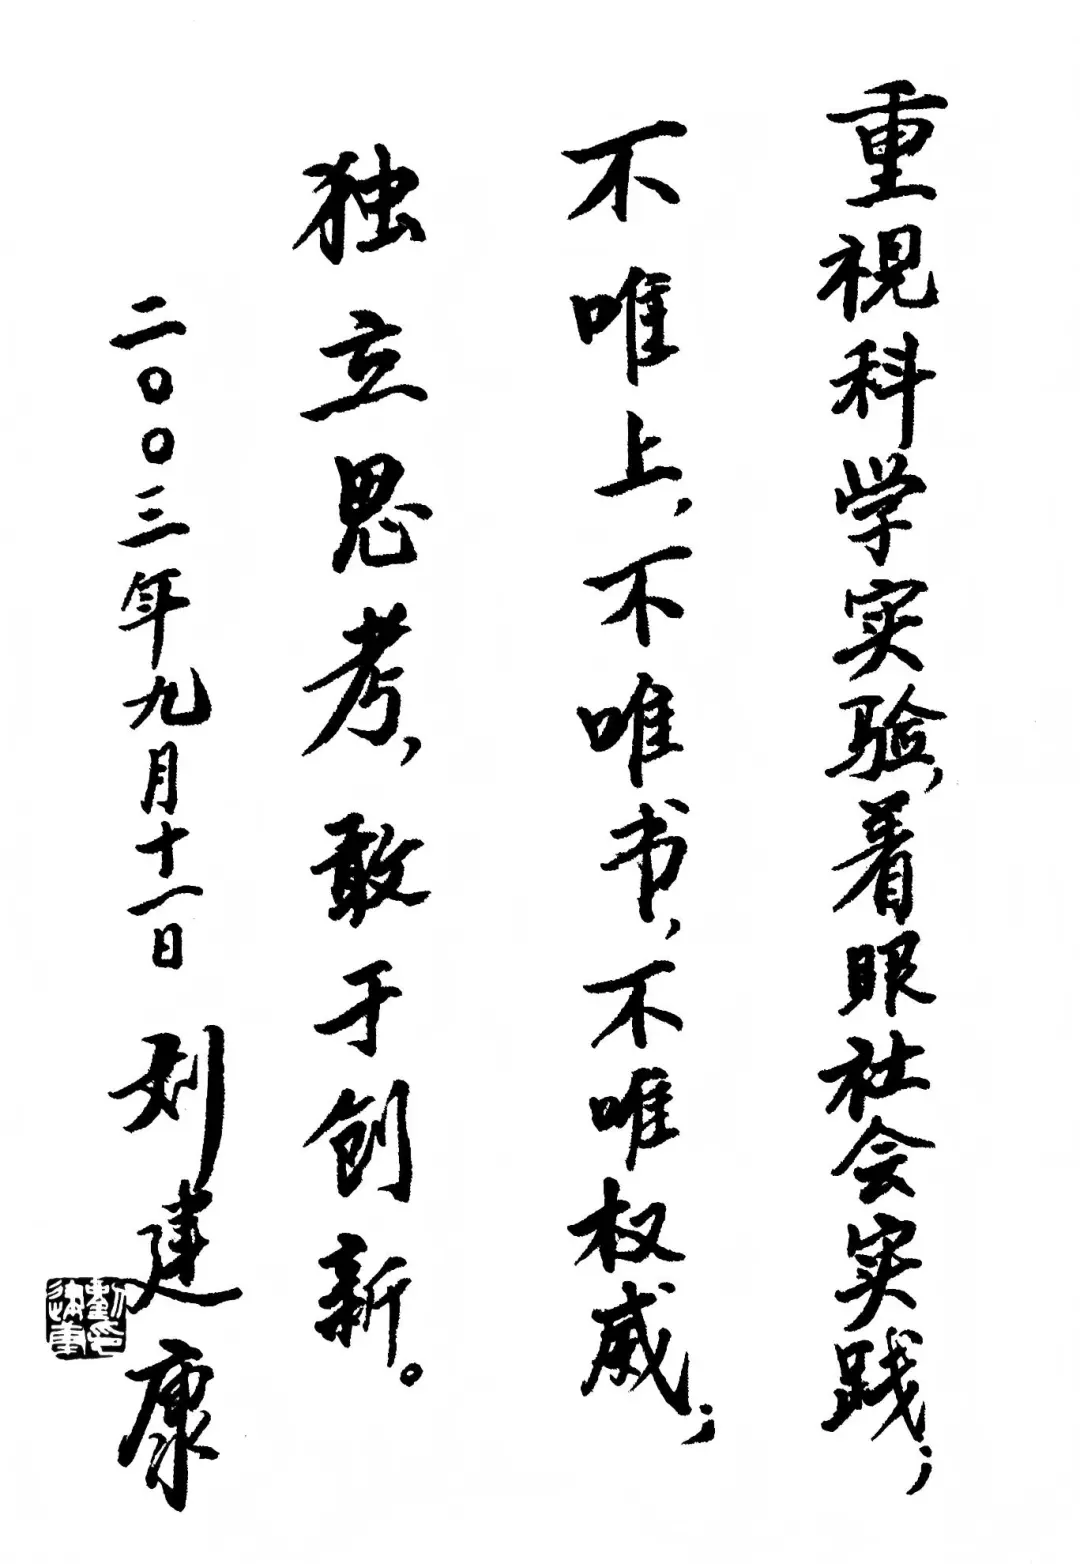 重視科学实验,着眼社会实践;
不唯上,不唯书,不唯权威;
独立思考,敢于创新。
二〇〇三年九月十一日 刘建康